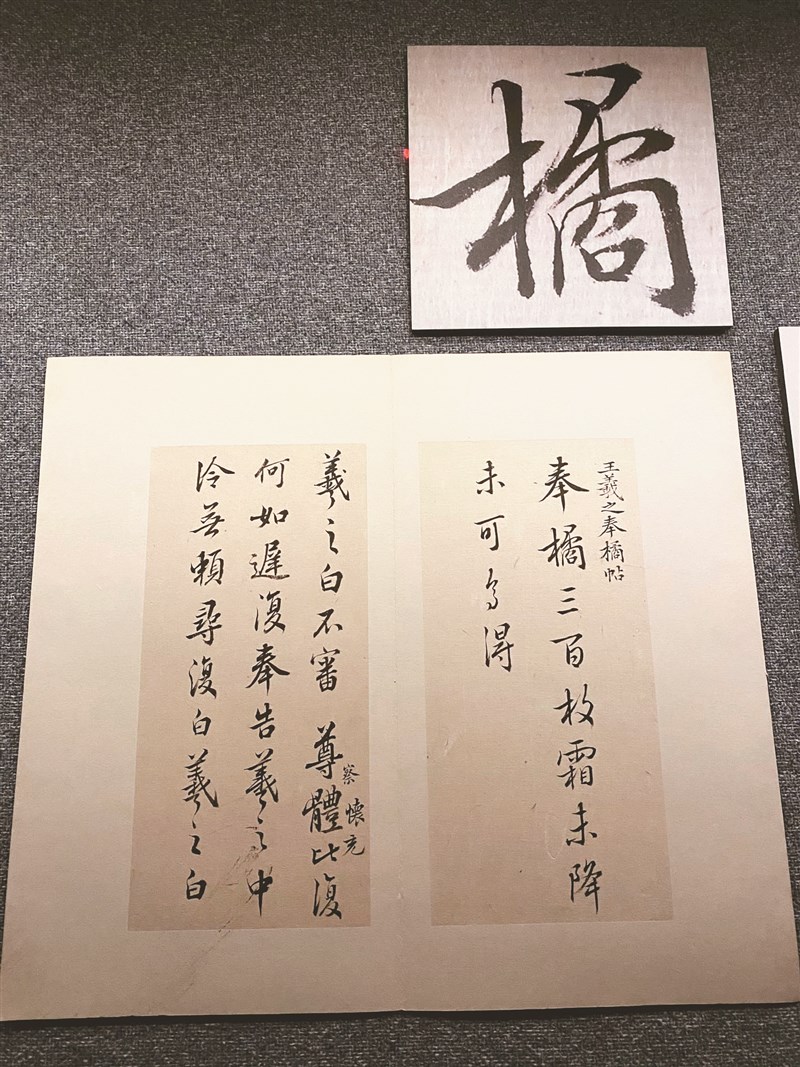 橘
王羲之奉橘帖
奉橘三百枚霜未降
未可多得
羲之白不審 尊體比復
察 懷充
何如遲復奉告羲之中
冷無賴尋復白羲之白